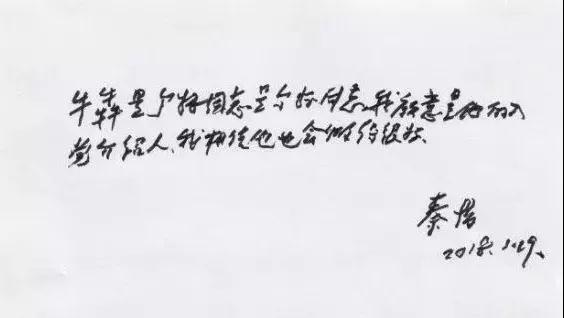 牛犇是个好同志是个好同志,我愿意是他的入
党介绍人,我相信他也会做得很好。
秦怡
2018.1.29.